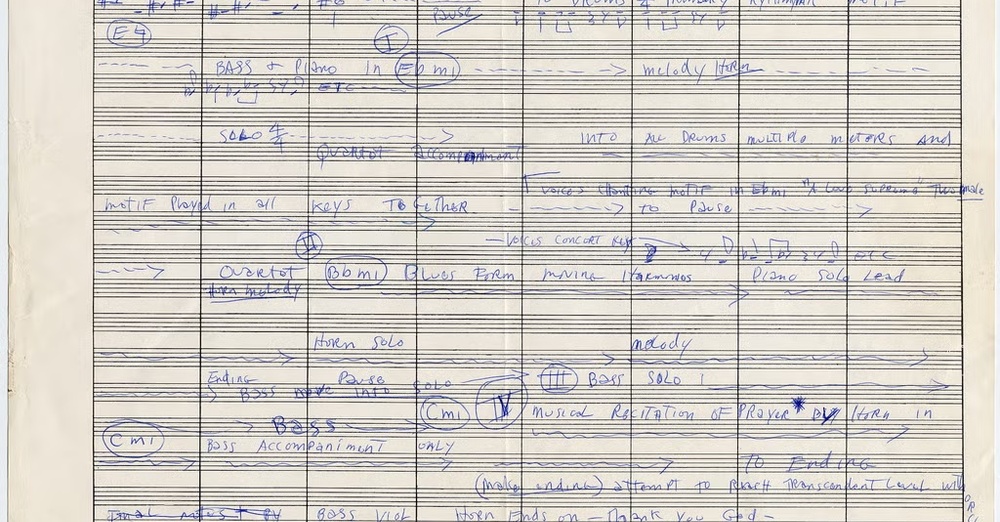 Pause
E4
I
BASS & PIANO IN Ebmi melody Horn
ETC
SOLO 4/4 INTO ALL DRUMS MULTIPLE METERS AND
QUARTET accompaniment
VOICES CHANTING MOTIF IN Ebmi "A Love Supreme" Two male
motif Played in all KEYS TOGETHER TO PAUSE
II
VOICES CONCERT KEY ETC
QUARTET Bbmi BLUES FORM MOVING HARMONIES PIANO SOLO LEAD
HORN melody
HORN SOLO melody
Ending Pause
BASS move INTO SOLO III BASS SOLO
Cmi IV MUSICAL RECITATION OF PRAYER* BY HORN IN
BASS
Cmi
BASS ACCOMPANIMENT ONLY
TO Ending
(make ending) attempt to reach transcendent level with
BASS VIOL HORN ENDS ON — Thank You God —